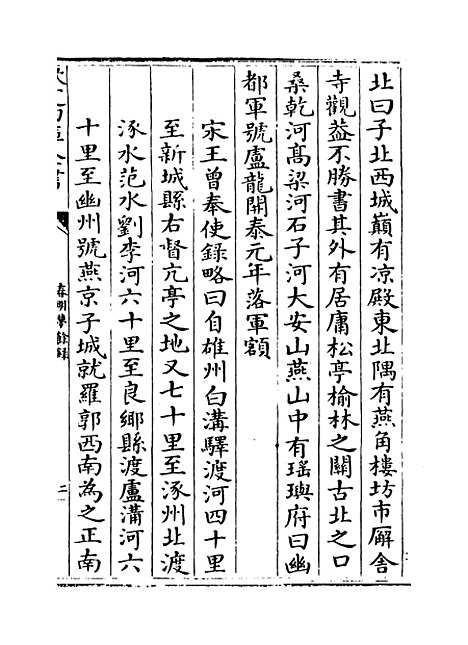 北曰子北西城巔有凉殿東北隅有燕角樓坊市廨舍
寺觀葢不勝書其外有居庸松亭榆林之關古北之口
桑乾河髙梁河石子河大安山燕山中有瑶璵府曰幽
都軍號盧龍開泰元年落軍額
宋王曽奉使録略曰自雄州白溝驛渡河四十里
至新城縣右督亢亭之地又七十里至涿州北渡
涿水范水劉李河六十里至良鄉縣渡盧溝河六
十里至幽州號燕京子城就羅郭西南為之正南
春明夢餘録